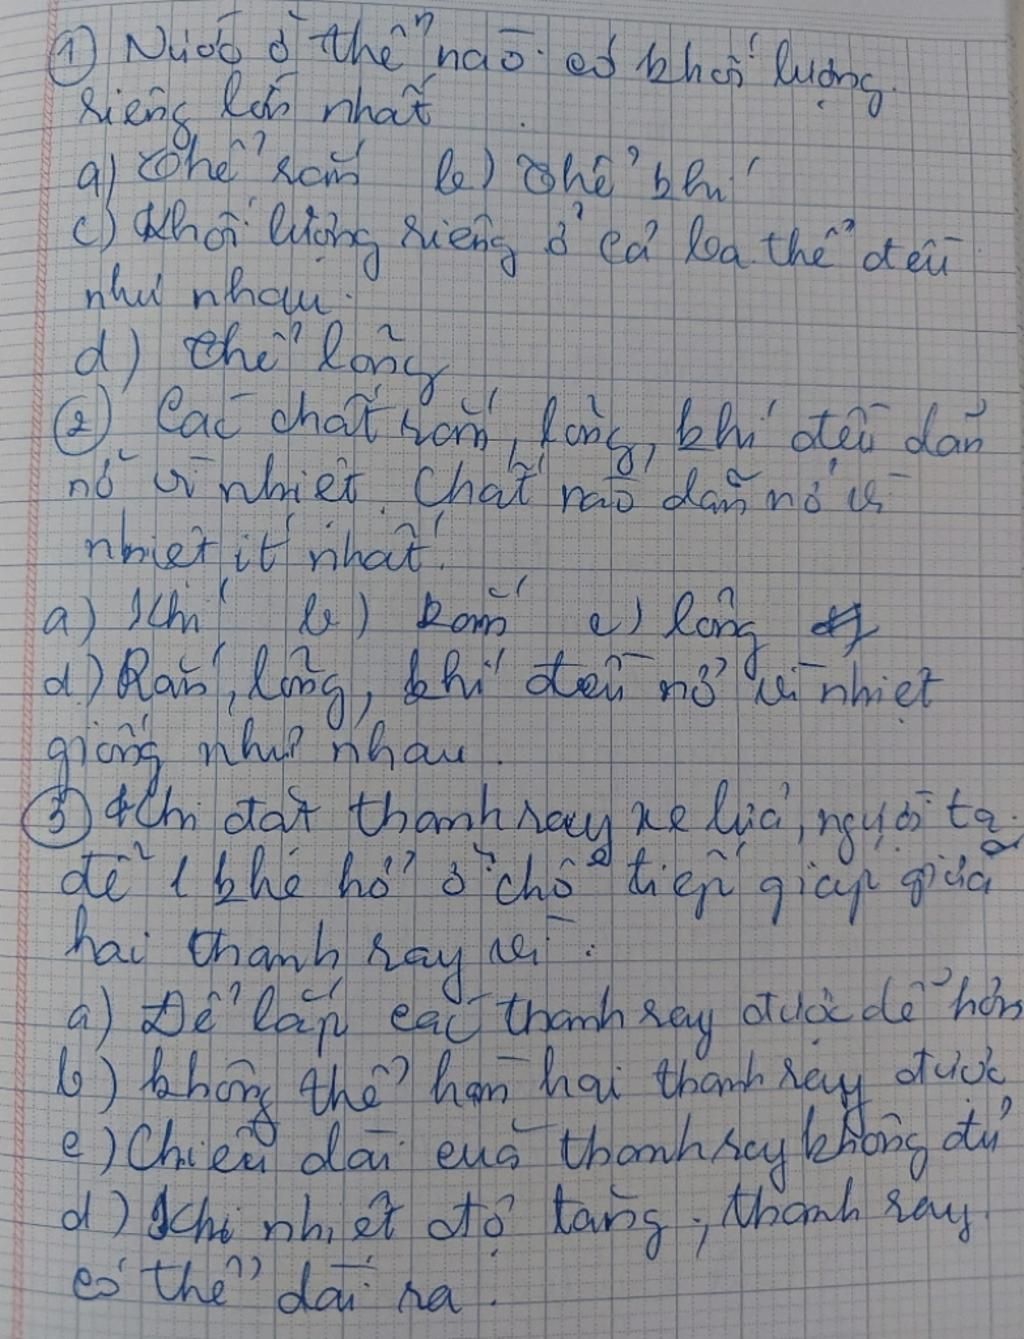 ① Nước ở thể nào có khối lượng
riêng lớn nhất
a) Thể rắn b) Thể khí
c) Khối lượng riêng ở cả ba thể đều
như nhau.
d) thể lỏng
② Các chất rắn, lỏng, khí đều dãn
nở vì nhiệt. Chất nào dãn nở vì
nhiệt ít nhất.
a) Khí b) Rắn c) lỏng
d) Rắn, lỏng, khí đều nở vì nhiệt
giống như nhau.
③ Khi đặt thanh ray xe lửa, người ta
để 1 khe hở ở chỗ tiếp giáp giữa
hai thanh ray vì :
a) Để lắp các thanh ray được dễ hơn
b) không thể hàn hai thanh ray được
c) Chiều dài của thanh ray không đủ
d) Khi nhiệt độ tăng, thanh ray
có thể dài ra.